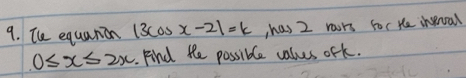 9. The equation |3cos x - 2| = k, has 2 roots for the interval
0 ≤ x ≤ 2x. Find the possible values of k.